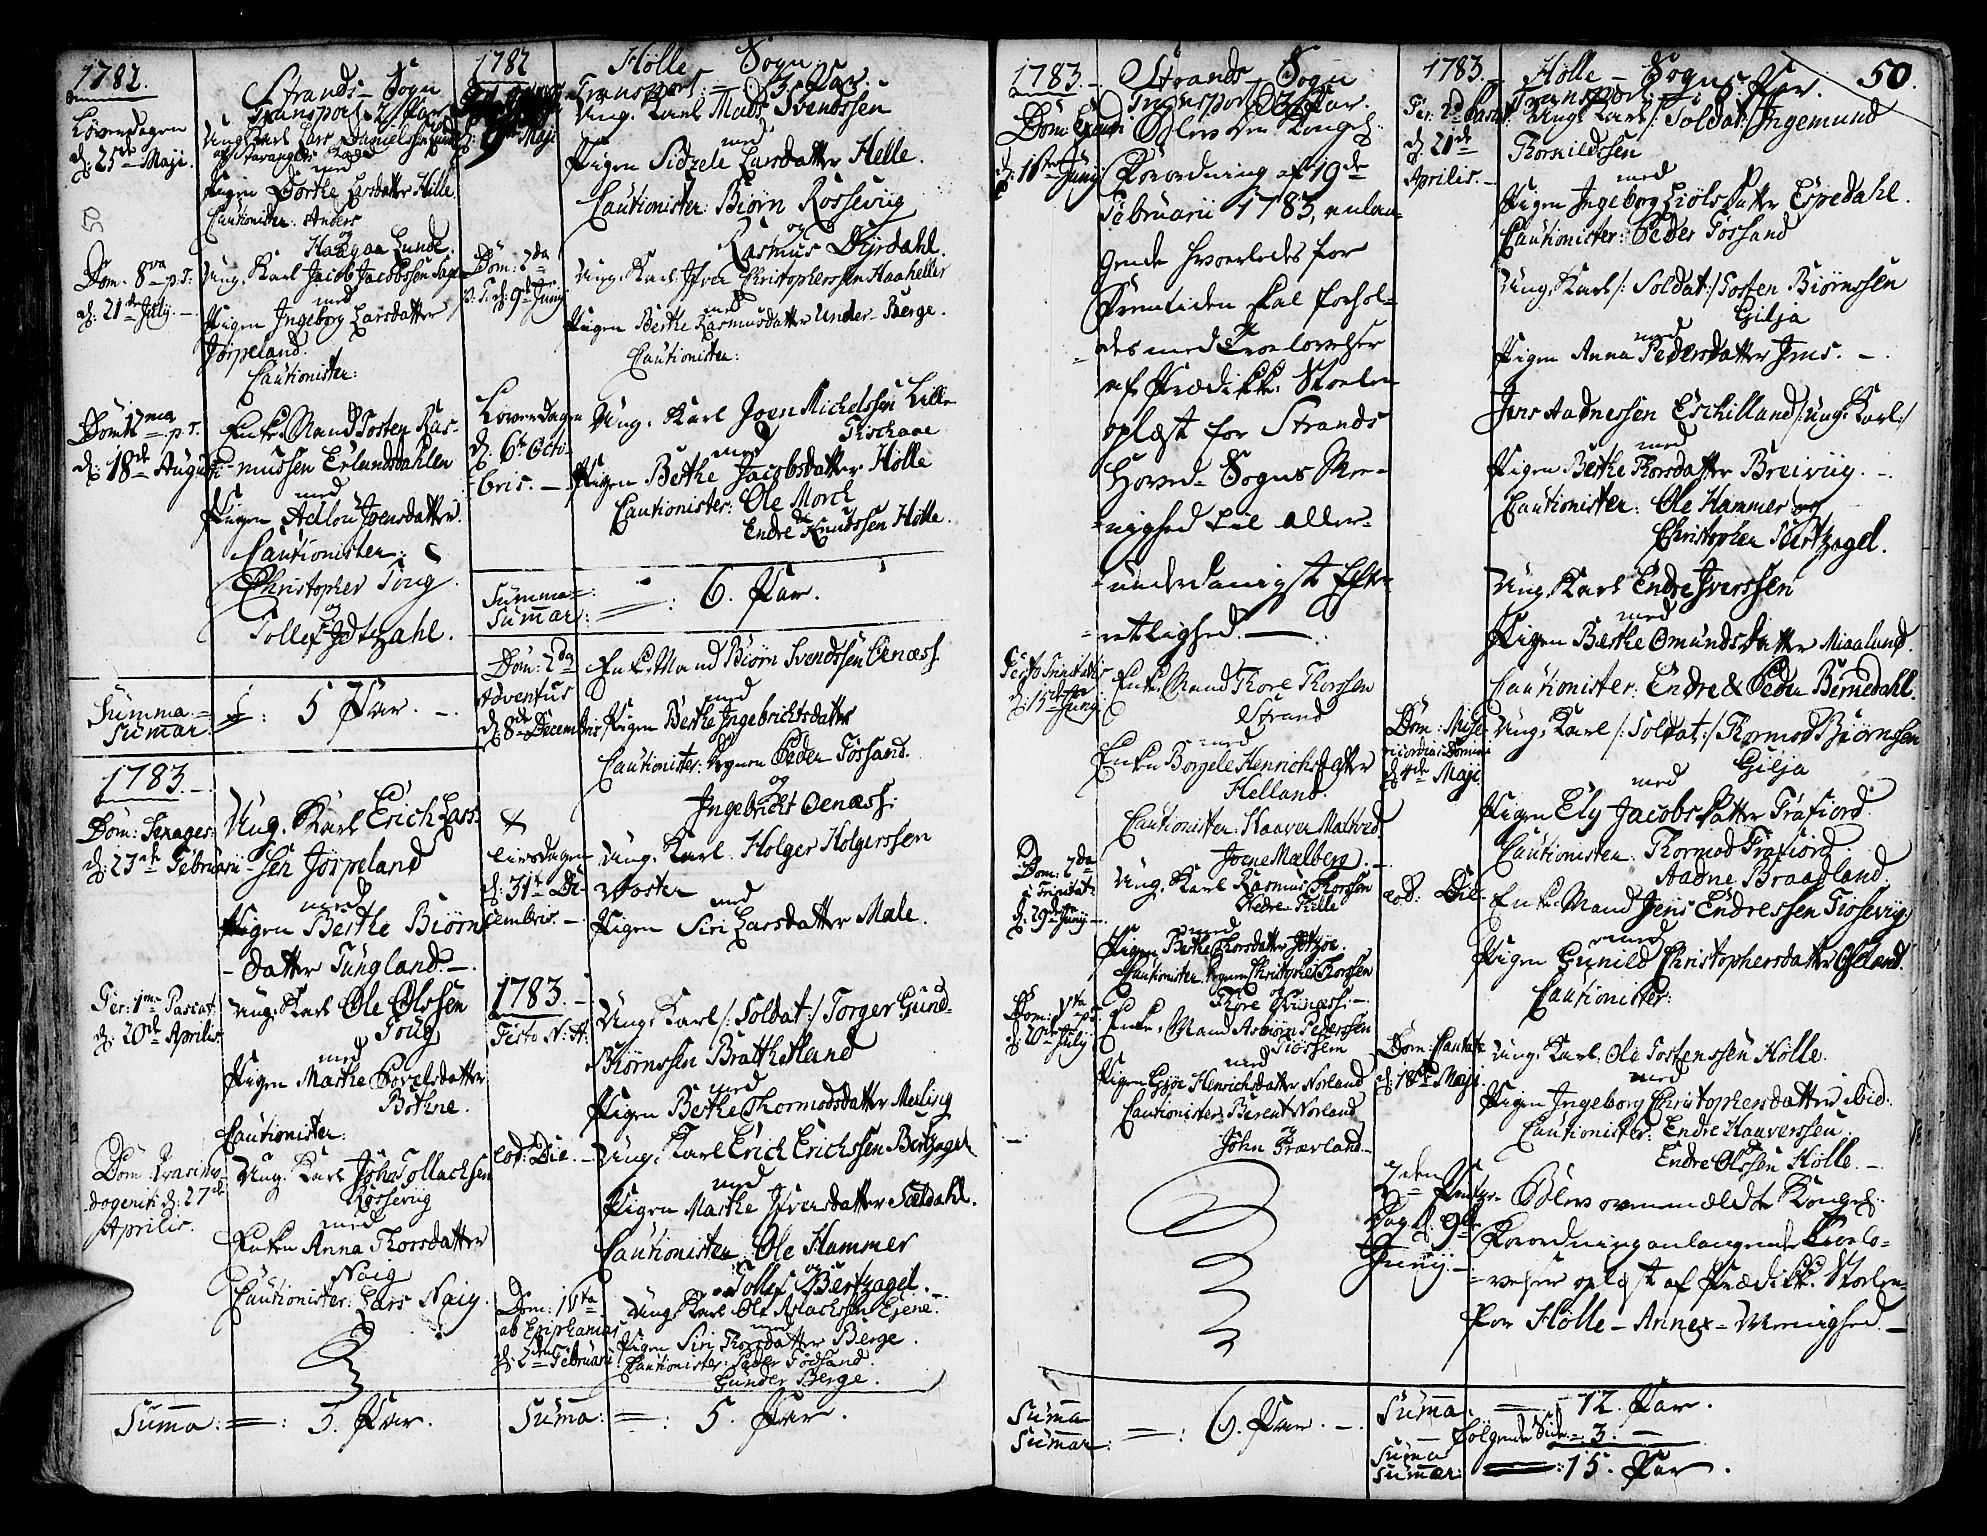 1782.
Strands - Sogn
Transport 2 Par
Løverdagen
d: 25de Maji.
Ung Karl Lars Danielssen
med
Pigen Dorthe Larsdatter Hille
Cautionister. Anders
og
Haagaa Lunde.
Dom: 8va p. T:
d: 21de Julij. -
Ung. Karl Jacob Jacobssen
med
Pigen Ingeborg Larsdatter
Jørpeland.
Cautionister:
Dom: 12ma p. T.
d: 18de Augusti
Enke Mand Tosten Ras-
mussen Erlandsdahlen
med
Pigen Adlou Joensdatter.
Cautionister:
Christopher Toug.
og
Tollef Idtzdahl.
Summa
Sumar = : 5 Par. -
1783. -
Dom: Sexages:
d: 23de Februarii
Ung. Karl Erich Lars-
sen Jørpeland
med
Pigen Berthe Biørns
datter Tungland. -
Fer: 1ma Pascat:
d: 20de Aprilis
Ung. Karl Ole Olssen
Toug
med
Pigen Marthe Povelsdatter
Bothne.
Cautionister:
Dom: Qvasimo-
dogeniti d: 27de
Aprilis.
Ung. Karl John Tollachsen
Rossevig
med
Enken Anna Thorsdatter
Naig
Cautionister: Lars Naig.
Suma: = : 3. Par.
1782
Hølle Sogn
Transport: = 3. Par.
Maji
Ung. Karl Mads Svendssen
med
Pigen Sidzele Larsdatter Helle.
Cautionister: Biørn Rossevig
og
Rasmus Dyrdahl.
Dom: 2da
p. T. d: 9de Junij
Ung. Karl Ifver Christopherssen Haaheller
med
Pigen Berthe Rasmusdatter Under-Berge.
Cautionister:
Løverdagen
d: 6te Octo-
bris. -
Ung. Karl Joen Michelssen Lille
med
Pigen Berthe Jacobsdatter Hølle
Cautionister: Ole Morch
Endre Knudssen Hølle.
Summa
Sumar: = : 6. Par.
Dom: 2da
Adventus
d: 8de Decembris
Enke Mand Biørn Svendssen Oenæss
med
Pigen Berthe Ingebrichtsdatter
Cautionister: Peder Tøssand.
og
Ingebricht Oenæss:
Tirsdagen
d: 31te De-
cembris. -
Ung. Karl Holger Holgerssen
med
Pigen Siri Larsdatter Mæle.
1783. -
Festo N: A:
Ung. Karl /: Soldat :/ Torger Gund-
Biørnssen Bratthetland
med
Pigen Berthe Thormodsdatter Meling
eod: Die. -
Ung. Karl Erich Erichssen Bertzagel
med
Pigen Marthe Ifversdatter Sældahl.
Cautionister: Ole Hammer
og
Tollef Bertzagel.
Dom: IVta
ab Epiphanias
d: 2den Februarii
Ung. Karl Ole Aslachssen Eiene.
med
Pigen Siri Thorsdatter Berge.
Cautionister: Peder Tødsand.
Gunder Berge.
Suma: = : 5. Par.
1783. -
Strands - Sogn
Transport 3 Par.
Dom: Exaudi
d: 1ste Junij
Blev den Kongel:
Forordning af 19de
Februarii 1783, anlan-
gende hvorledes for
Fremtiden skal forhol-
des med Trolovelser
af Prædike Stolen
oplæst for Strands
Hoved-Sogns Me-
nighed til aller-
underdanigst Efter-
rettlighed. -
Festo Trinitatis
d: 15de Junij
Enke Mand Thore Thorssen
Strand
med
Enken Borgele Henrichsdatter
Helland.
Cautionister: Haaver Maltved
Joene Mælberg.
Dom: 2da
Trinitat:
d: 29de Junij
Ung. Karl Rasmus Thorssen
Nedre-Tille
med
Pigen Berthe Thorsdatter Idtzøe.
Cautionister: Christopher Thorssen
og
Thore Funæss:
Dom: Vta p. T.
d: 20de Julij
Enke Mand Asbiørn Pederssen
Tiøssem
med
Pigen Giøe Henrichsdatter Norland
Cautionister: Berent Norland
og
John Træland
Suma
Sumar: = : 6. Par. -
1783. -
Hølle - Sogn
Transport: 5. Par.
50.
Fer: 2da Pascat:
d: 21de
Aprilis. -
Ung. Karl /: Soldat :/ Ingemund
Thorkildssen
med
Pigen Ingeborg Eiolsdatter Espedahl.
Cautionister: Peder Tøssand
Ung. Karl /: Soldat :/ Tosten Biørnssen
Gilja
med
Pigen Anna Pedersdatter Ims. -
Jens Aadnessen Eschilland /: Ung. Karl :/
med
Pigen Berthe Thorsdatter Breiviig. -
Cautionister: Ole Hammer og
Christopher Bertzagel.
Ung. Karl Endre Iverssen
med
Pigen Berthe Omundsdatter Miaaland.
Cautionister: Endre & Peder Bernedahl.
Dom: Mise-
ricordias Domini
d: 4de Maji
Ung. Karl /: Soldat :/ Thormod Biørnssen
Gilja
med
Pigen Ely Jacobsdatter Frafiord.
Cautionister: Thormod Frafiord.
Aadne Braadland.
eod: Die
Enke Mand Jens Endressen Tiossevig
med
Pigen Gunild Christophersdatter Øseland.
Cautionister:
Dom: Cantate
d: 18de Maji
Ung. Karl Ole Tostenssen Hølle.
med
Pigen Ingeborg Christophersdatter ibid:
Cautionister: Endre Haaverssen.
Endre Olssen Hølle. -
2den Pintze-
Dag d: 9de
Junij. -
Blev ovenmældte Kongel:
Forordning anlangende Trolo-
velser oplæst af Prædike Stolen
for Hølle-Annex-Menighed. -
Suma: = 12. Par.
Følgende Side = 3. -
Suma
Sumar: = : 15. Par.